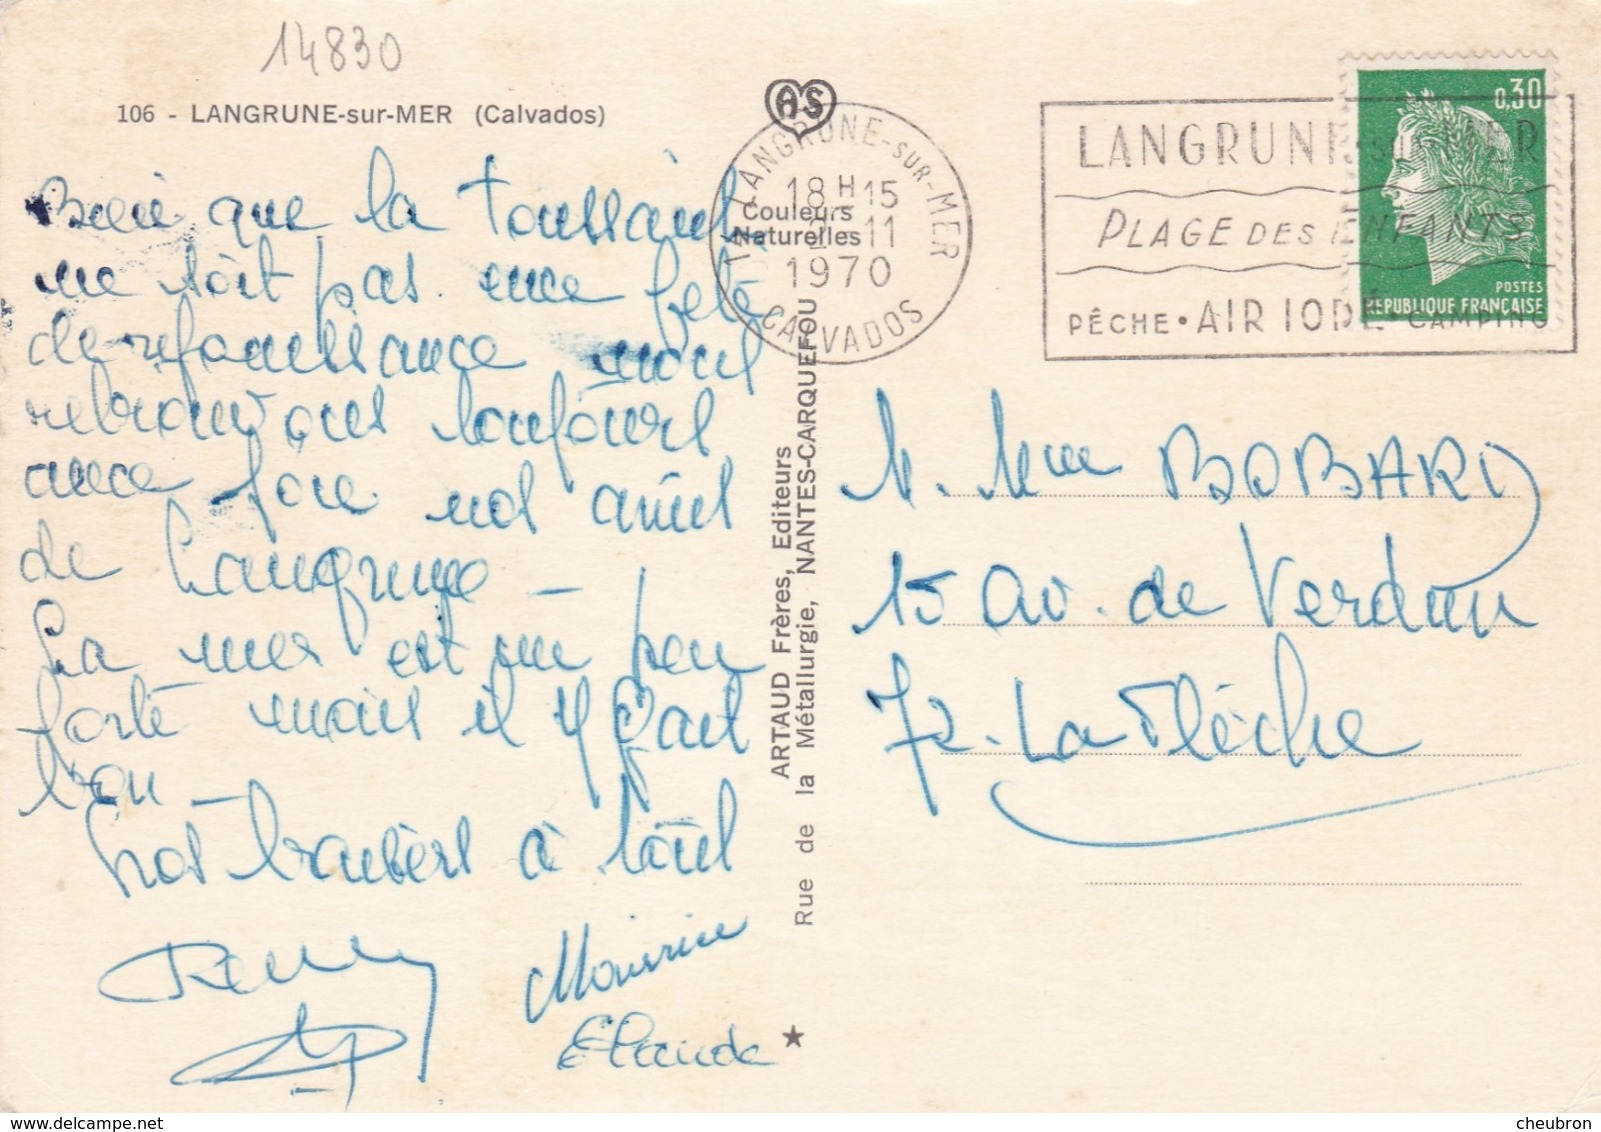 14830
106 - LANGRUNE-sur-MER (Calvados)
AS
Couleurs
Naturelles
14 LANGRUNE-SUR-MER
18H15
2-11
1970
CALVADOS
LANGRUNE SUR MER
PLAGE DES ENFANTS
PÊCHE • AIR IODÉ • CAMPING
0,30
POSTES
REPUBLIQUE FRANÇAISE
Bien que la Toussaint
ne soit pas une fête
de réjouissance nous
retrouvons toujours
avec joie nos amis
de Langrune -
La mer est un peu
forte mais il y fait
bon -
Nos baisers à tous
Maurice
Claude
ARTAUD Frères, Editeurs
Rue de la Métallurgie, NANTES-CARQUEFOU
M. Mme BOBARD
15 av. de Verdun
72. La Flèche
delcampe.net
cheubron